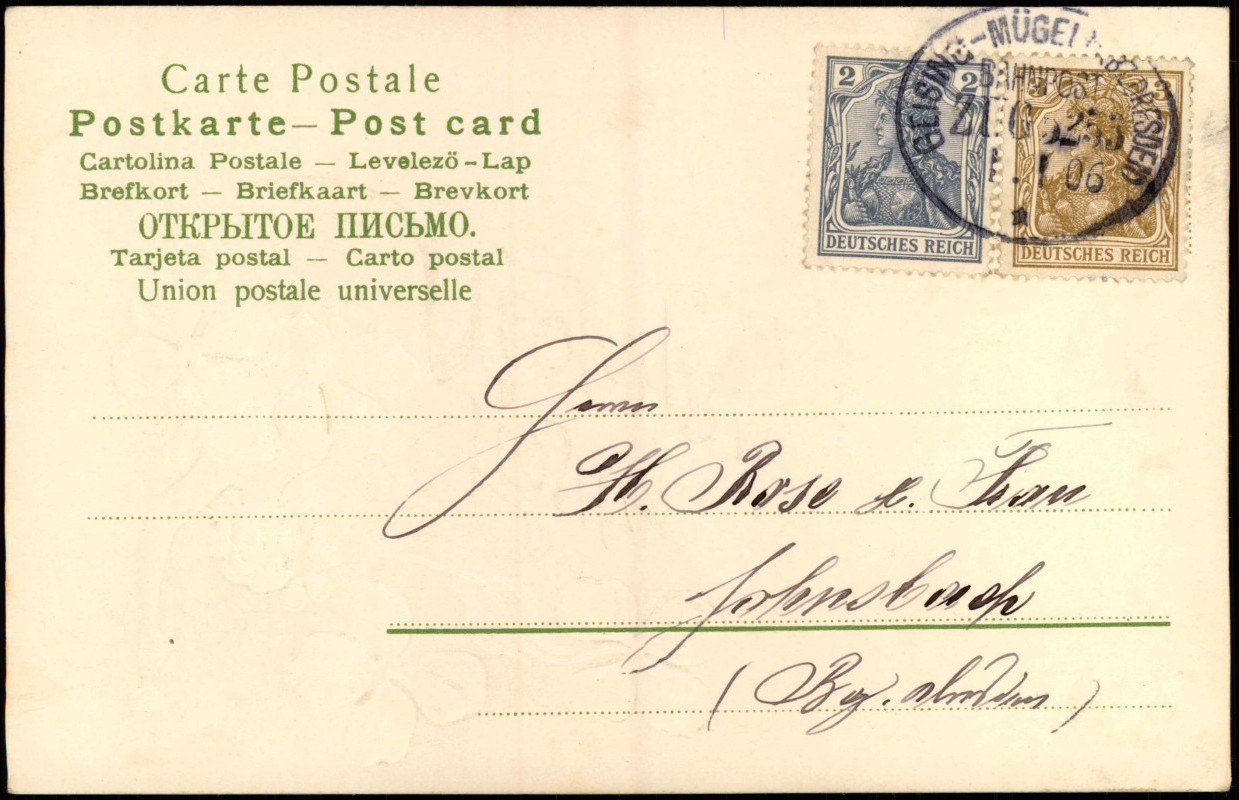 Carte Postale
Postkarte — Post card
Cartolina Postale — Levelezö-Lap
Brefkort — Briefkaart — Brevkort
ОТКРЫТОЕ ПИСЬМО.
Tarjeta postal — Carto postal
Union postale universelle
2 2
DEUTSCHES REICH
3 3
DEUTSCHES REICH
GEISING-MÜGELN (BZ. DRESDEN)
BAHNPOST
ZUG
06
Herrn
H. Rose u. Frau
Johnsbach